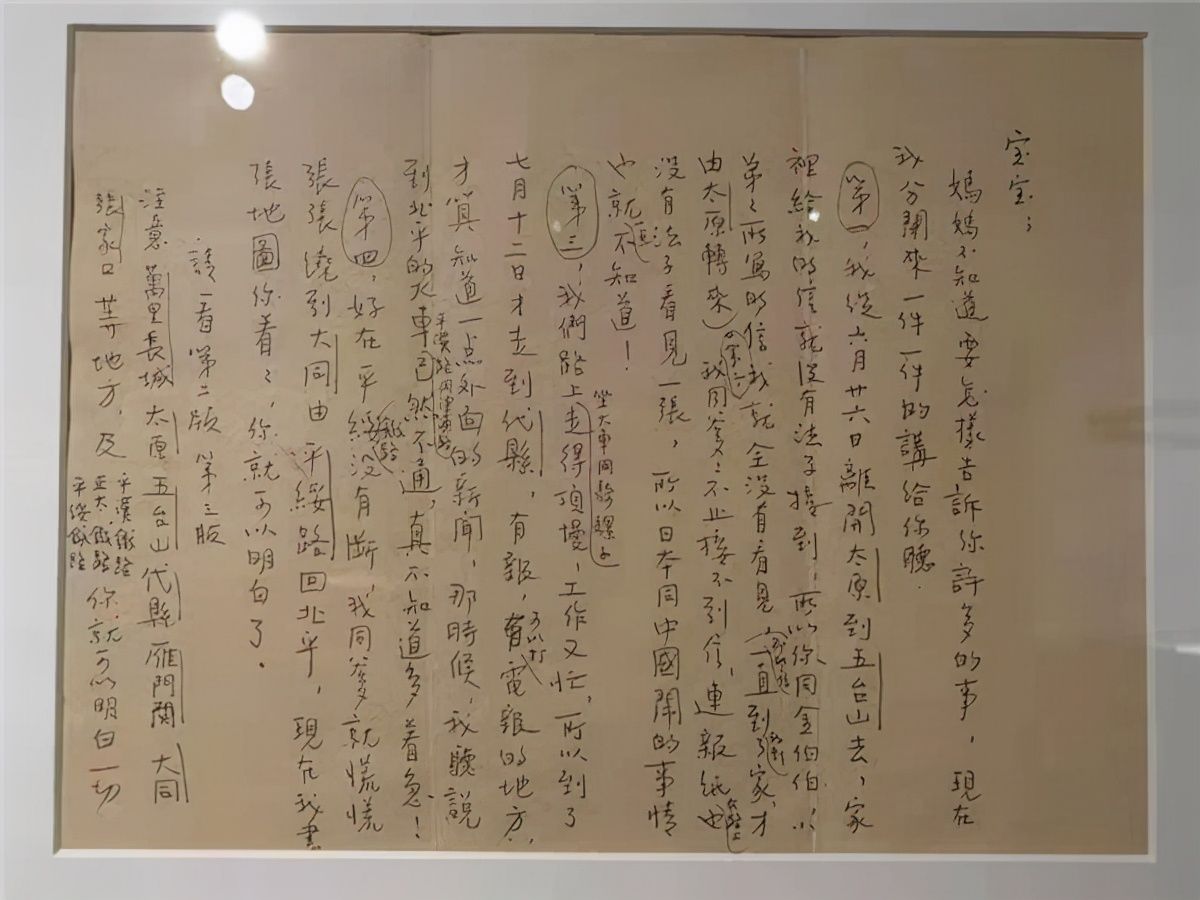 宝宝：
媽媽不知道要怎樣告訴你許多的事，現在
我分開來一件一件的講給你聽．
第一，我從六月廿六日離開太原到五台山去，家
裡給我的信就沒有法子接到，所以你同金伯伯、小
弟弟所寫的信我就全沒有看見，一直到了家，才
由太原轉來）
我同爹爹不止接不到信，連報紙也
沒有法子看見一張，所以日本同中國鬧的事情
也就不知道！
第三，我們路上走得頂慢，工作又忙，所以到了
坐大車同騎騾子
七月十二日才走到代縣，有報，可以打電報的地方，
才算知道一点外面的新聞，那時候，我聽說
到北平的火車已然不通，真不知道多着急！
第四，好在平綏鐵路沒有斷，我同爹爹就慌慌
張張繞到大同由平綏路回北平，現在我畫
張地圖你看看，你就可以明白了．
請看第二版 第三版
注意萬里長城 太原 五台山 代縣 雁門關 大同
張家口等地方，及
平漢鐵路
正太鐵路
平綏鐵路
你就可以明白一切